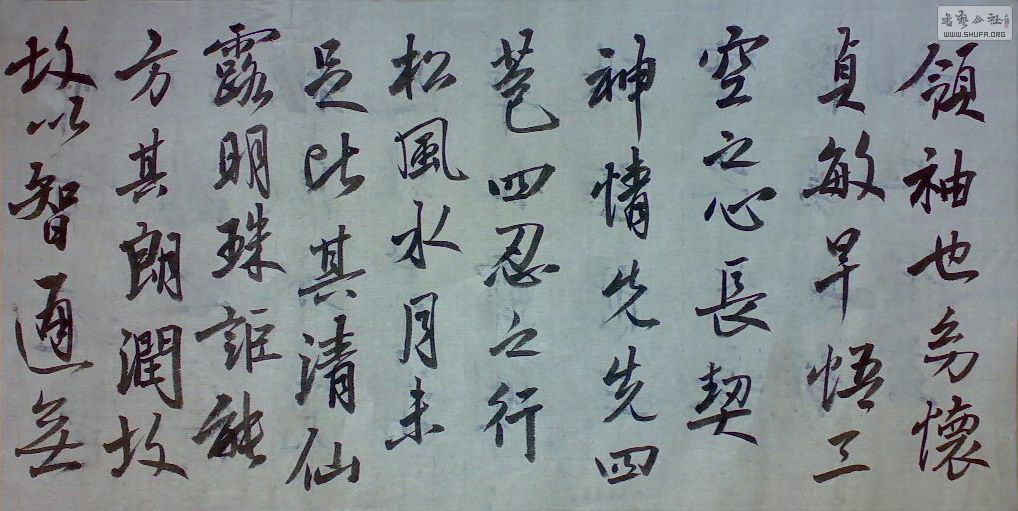 領袖也幼懷
貞敏早悟三
空之心長契
神情先先四
苞四忍之行
松風水月未
足比其清仙
露明珠詎能
方其朗潤故
故以智通無
書藝公社
WWW.SHUFA.ORG